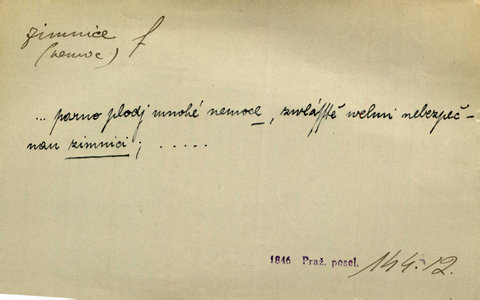 zimnice f
(nemoc)
... parno plodj mnohé nemoce, zwlásstě welmi nebezpeč-
nau zimnici; .....
1846 Praž. posel. 144.12.